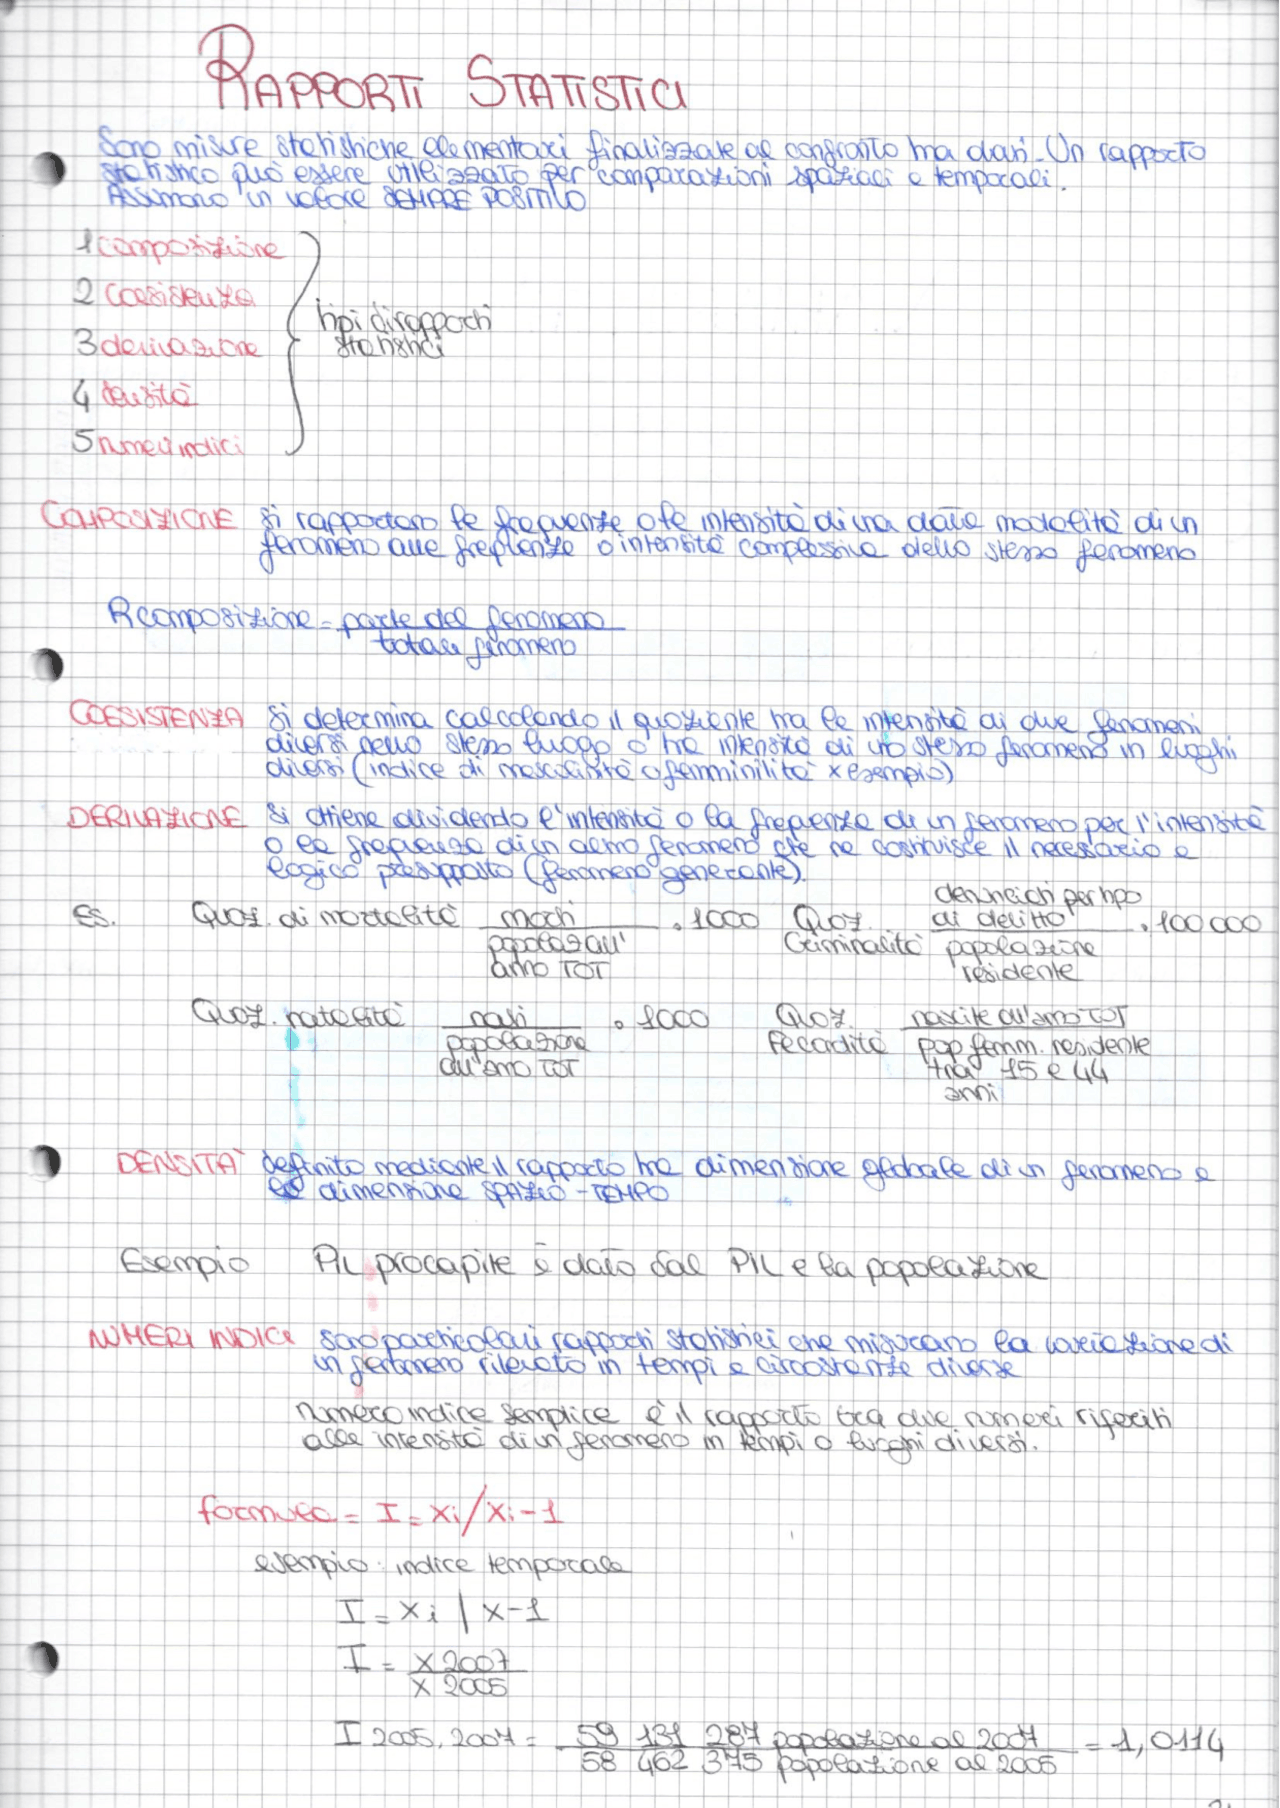 RAPPORTI STATISTICI
Sono misure statistiche elementari finalizzate al confronto tra dati. Un rapporto
statistico può essere utilizzato per comparazioni spaziali e temporali.
Assumono un valore SEMPRE POSITIVO
1 composizione
2 coesistenza
3 derivazione
4 densità
5 numeri indici
tipi di rapporti
statistici
COMPOSIZIONE si rapportano le frequenze o le intensità di una data modalità di un
fenomeno alle frequenze o intensità complessiva dello stesso fenomeno
R composizione = parte del fenomeno
totale fenomeno
COESISTENZA si determina calcolando il quoziente tra le intensità di due fenomeni
diversi nello stesso luogo o tra intensità di uno stesso fenomeno in luoghi
diversi (indice di mascolinità o femminilità x esempio)
DERIVAZIONE si ottiene dividendo l'intensità o la frequenza di un fenomeno per l'intensità
o la frequenza di un altro fenomeno che ne costituisce il necessario e
logico presupposto (fenomeno generante).
es. Quoz. di mortalità morti . 1000
popolaz all'
anno TOT
Quoz. Criminalità denunciati per tipo
di delitto . 100 000
popolazione
residente
Quoz. natalità nati . 1000
popolazione
all'anno TOT
Quoz. Fecondità nascite all'anno TOT
pop femm. residente
tra 15 e 44
anni
DENSITÀ definito mediante il rapporto tra dimensione globale di un fenomeno e
la dimensione SPAZIO - TEMPO
Esempio PIL procapite è dato dal PIL e la popolazione
NUMERI INDICI sono particolari rapporti statistici che misurano la variazione di
un fenomeno rilevato in tempi e circostanze diverse
numero indice semplice è il rapporto tra due numeri riferiti
alle intensità di un fenomeno in tempi o luoghi diversi.
formula = I = xi/xi-1
esempio: indice temporale
I = xi | x-1
I = x 2007
x 2005
I 2005, 2007 = 59 131 287 popolazione al 2007 = 1,0114
58 462 375 popolazione al 2005